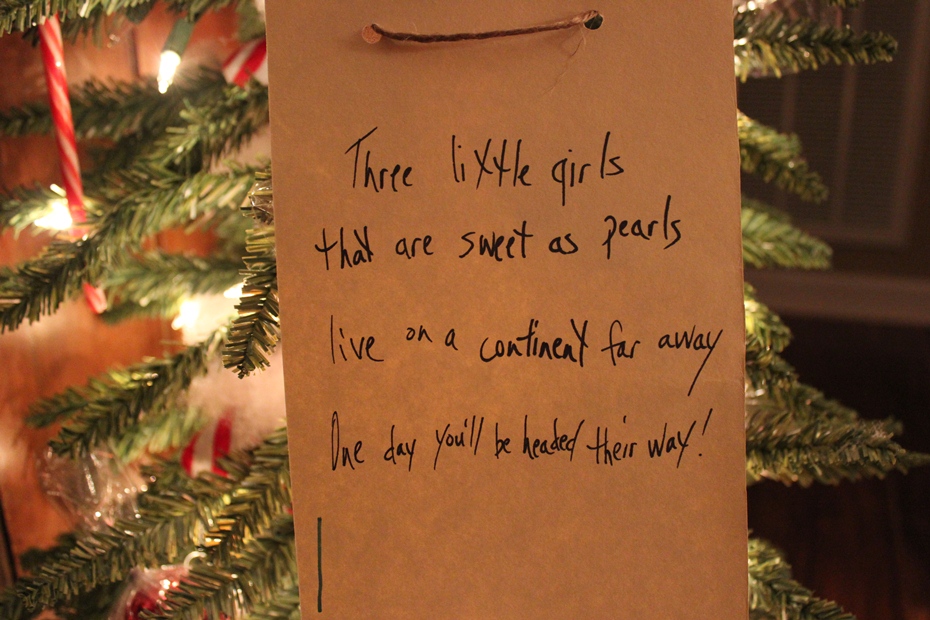 Three little girls
that are sweet as pearls
live on a continent far away
One day you'll be headed their way!